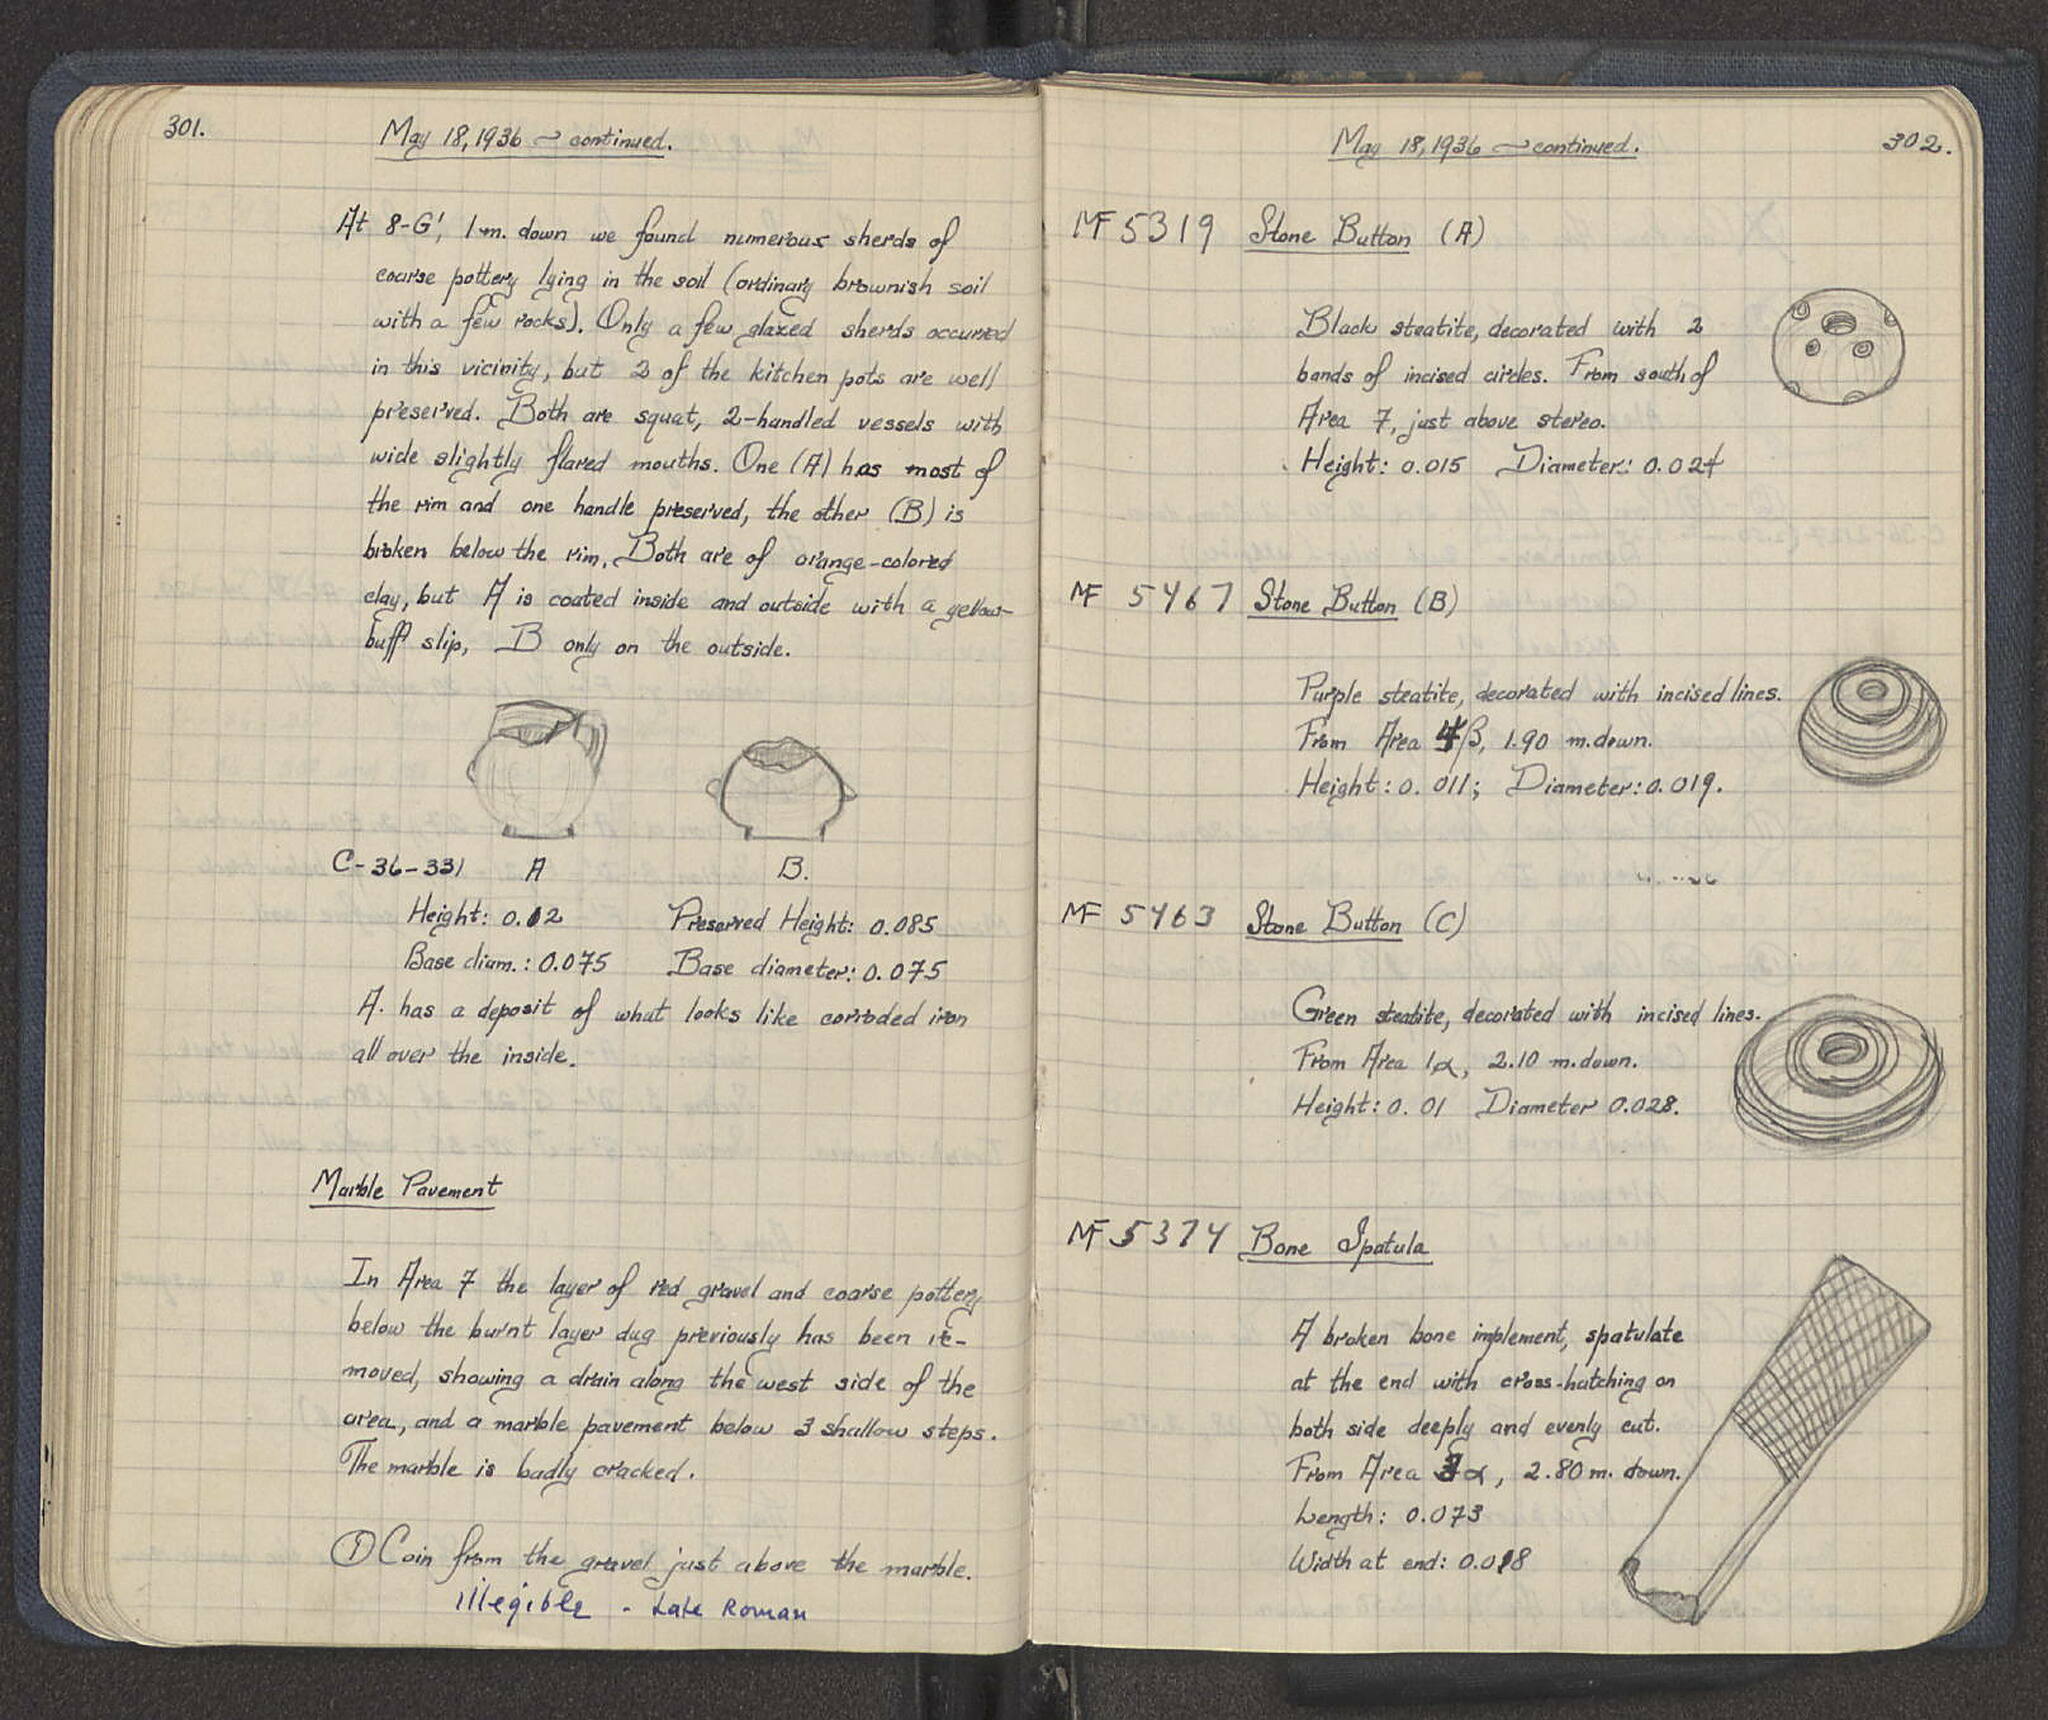 301.
May 18, 1936 ~ continued.
At 8-G', 1 m. down we found numerous sherds of
coarse pottery lying in the soil (ordinary brownish soil
with a few rocks). Only a few glazed sherds occurred
in this vicinity, but 2 of the kitchen pots are well
preserved. Both are squat, 2-handled vessels with
wide slightly flared mouths. One (A) has most of
the rim and one handle preserved, the other (B) is
broken below the rim. Both are of orange-colored
clay, but A is coated inside and outside with a yellow-
buff slip, B only on the outside.
C-36-331 A B.
Height: 0.12 Preserved Height: 0.085
Base diam.: 0.075 Base diameter: 0.075
A. has a deposit of what looks like corroded iron
all over the inside.
Marble Pavement
In Area 7 the layer of red gravel and coarse pottery
below the burnt layer dug previously has been re-
moved, showing a drain along the west side of the
area, and a marble pavement below 3 shallow steps.
The marble is badly cracked.
① Coin from the gravel just above the marble.
illegible - Late Roman
May 18, 1936 ~ continued.
302.
MF 5319 Stone Button (A)
Black steatite, decorated with 2
bands of incised circles. From south of
Area 7, just above stereo.
Height: 0.015 Diameter: 0.024
MF 5467 Stone Button (B)
Purple steatite, decorated with incised lines.
From Area 4β, 1.90 m. down.
Height: 0.011; Diameter: 0.019.
MF 5463 Stone Button (C)
Green steatite, decorated with incised lines.
From Area 1α, 2.10 m. down.
Height: 0.01 Diameter 0.028.
MF 5374 Bone Spatula
A broken bone implement, spatulate
at the end with cross-hatching on
both side deeply and evenly cut.
From Area 3α, 2.80 m. down.
Length: 0.073
Width at end: 0.018